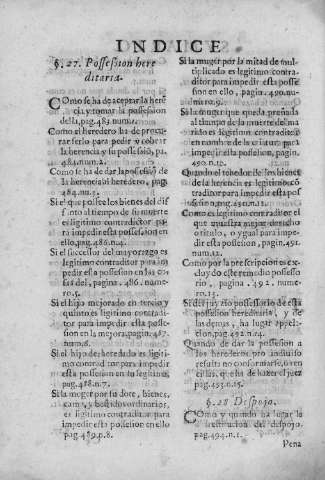 INDICE
§. 27. Possession here
ditaria.
COmo se ha de aceptar la herē
cia, y tomar la possession
della, pag. 483. num. 1.
Como el heredero ha de procu-
rar serlo para pedir y cobrar
la herencia y su possessiō, pa.
484. num. 2.
Como se ha de dar la possessiō de
la herencia al heredero, pag.
484. num. 3.
Si el que possee los bienes del dif
funto al tiempo de su muerte
es legitimo contraditor pa-
ra impedir esta possession en
ello, pag. 486. n. 4.
Si el successor del mayorazgo es
legitimo contraditor para im
pedir esta possession en las co
sas del, pagina. 486. nume-
ro. 5.
Si el hijo mejorado en tercio y
quinto es legitimo contradi-
tor para impedir esta posses-
sion en la mejora, pagin. 487.
num. 6.
Si el hijo desheredado es legiti-
mo contraditor para impedir
esta possession en su legitima
pag. 488. n. 7.
Si la muger por su dote, bienes,
y vestidos ordinarios,
es legitimo contraditor para
impedir esta possession en ello
pag. 489. n. 8.
Si la muger por la mitad de mul-
tiplicado es legitimo contra-
ditor para impedir esta posse
sion en ello, pagin. 490. nu-
mero. 9.
Si la muger que queda preñada
al tiempo de la muerte del ma
rido es legitimo contraditor
en nombre de la criatura, para
impedir esta possession, pagin.
490. n. 10.
Quando el tenedor de los bienes
de la herencia es legitimo cō
traditor para impedir esta pos
session, pag. 491. n. 11.
Como es legitimo contraditor el
que muestra mejor derecho
o ygual para impedir
esta possession, pagin. 491.
num. 12.
Como por la prescripcion es ex-
cluydo este remedio possesso
rio, pagina. 492. nume-
ro. 13.
Si del juyzio possessorio de esta
possession hereditaria, y de
las demas, ha lugar appela-
cion, pag. 492. n. 14.
Quando de dar la possession a
los herederos pro indiuiso
resulta no conformarse, o ren
cillas, que ha de hazer el juez
pag. 493. n. 15.
§. 28 Despojo.
COmo y quando ha lugar la
restitucion del despojo.
pag. 494. n. 1.
Pena